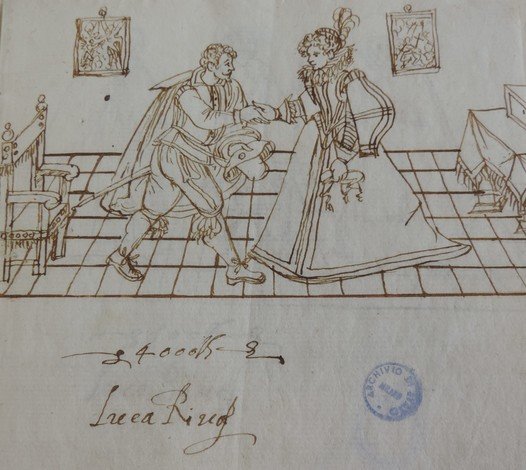 4000
Luca Riua
ARCHIVIO DI STATO
MILANO